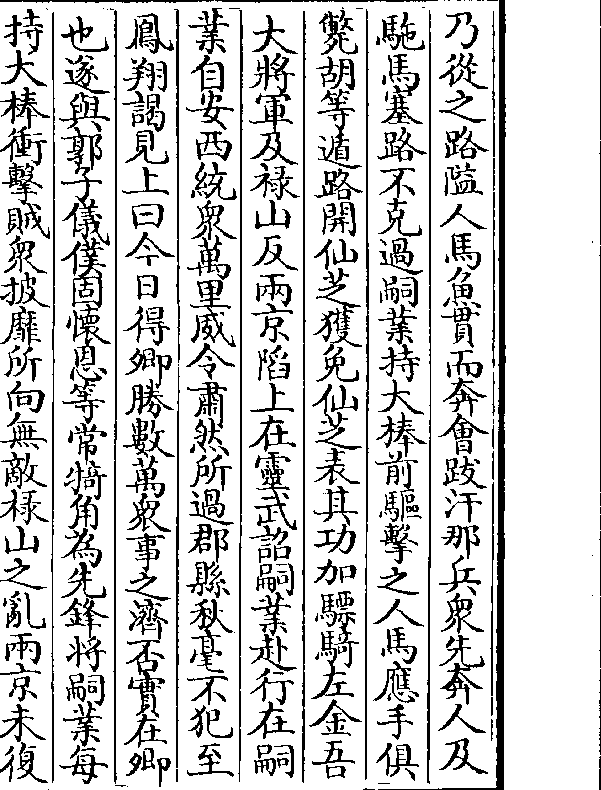 乃從之路隘人馬魚貫而奔會跋汗那兵衆先奔人及
駞馬塞路不克過嗣業持大棒前驅擊之人馬應手俱
斃胡等遁路開仙芝獲免仙芝表其功加驃騎左金吾
大將軍及祿山反兩京陷上在靈武詔嗣業赴行在嗣
業自安西統衆萬里威令肅然所過郡縣秋毫不犯至
鳳翔謁見上曰今日得卿勝數萬衆事之濟否實在卿
也遂與郭子儀僕固懷恩等常犄角為先鋒將嗣業每
持大棒衝擊賊衆披靡所向無敵祿山之亂兩京未復